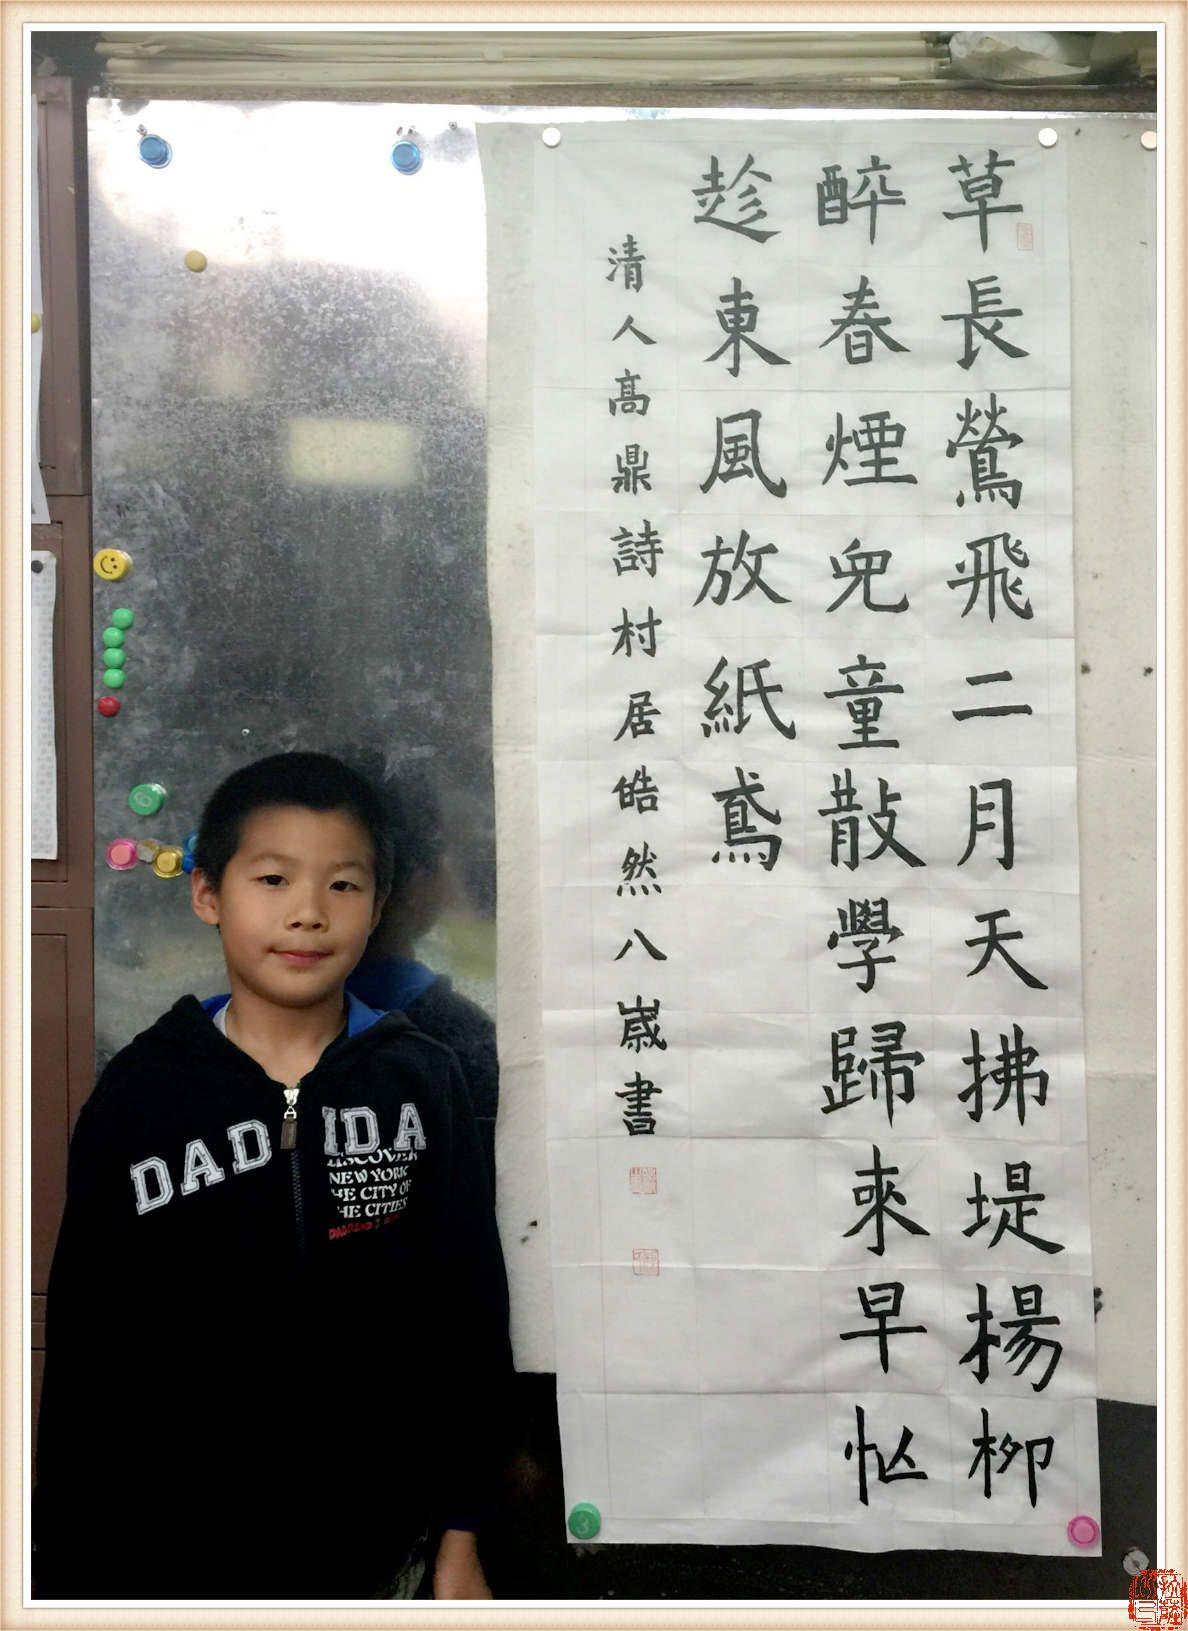 草長鶯飛二月天拂堤楊柳
醉春煙兒童散學歸來早忙
趁東風放紙鳶
清人高鼎詩村居皓然八歲書
DADIDA
NEW YORK
HE CITY OF
HE CITIES
6
3